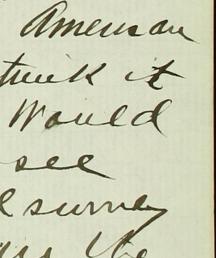 American
think it
Would
see
survey
the